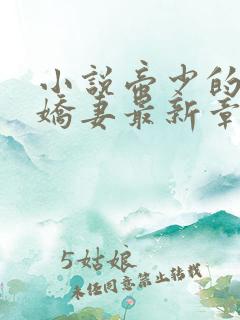 小说帝少的
娇妻最新章
5姑娘
未经同意禁止转载